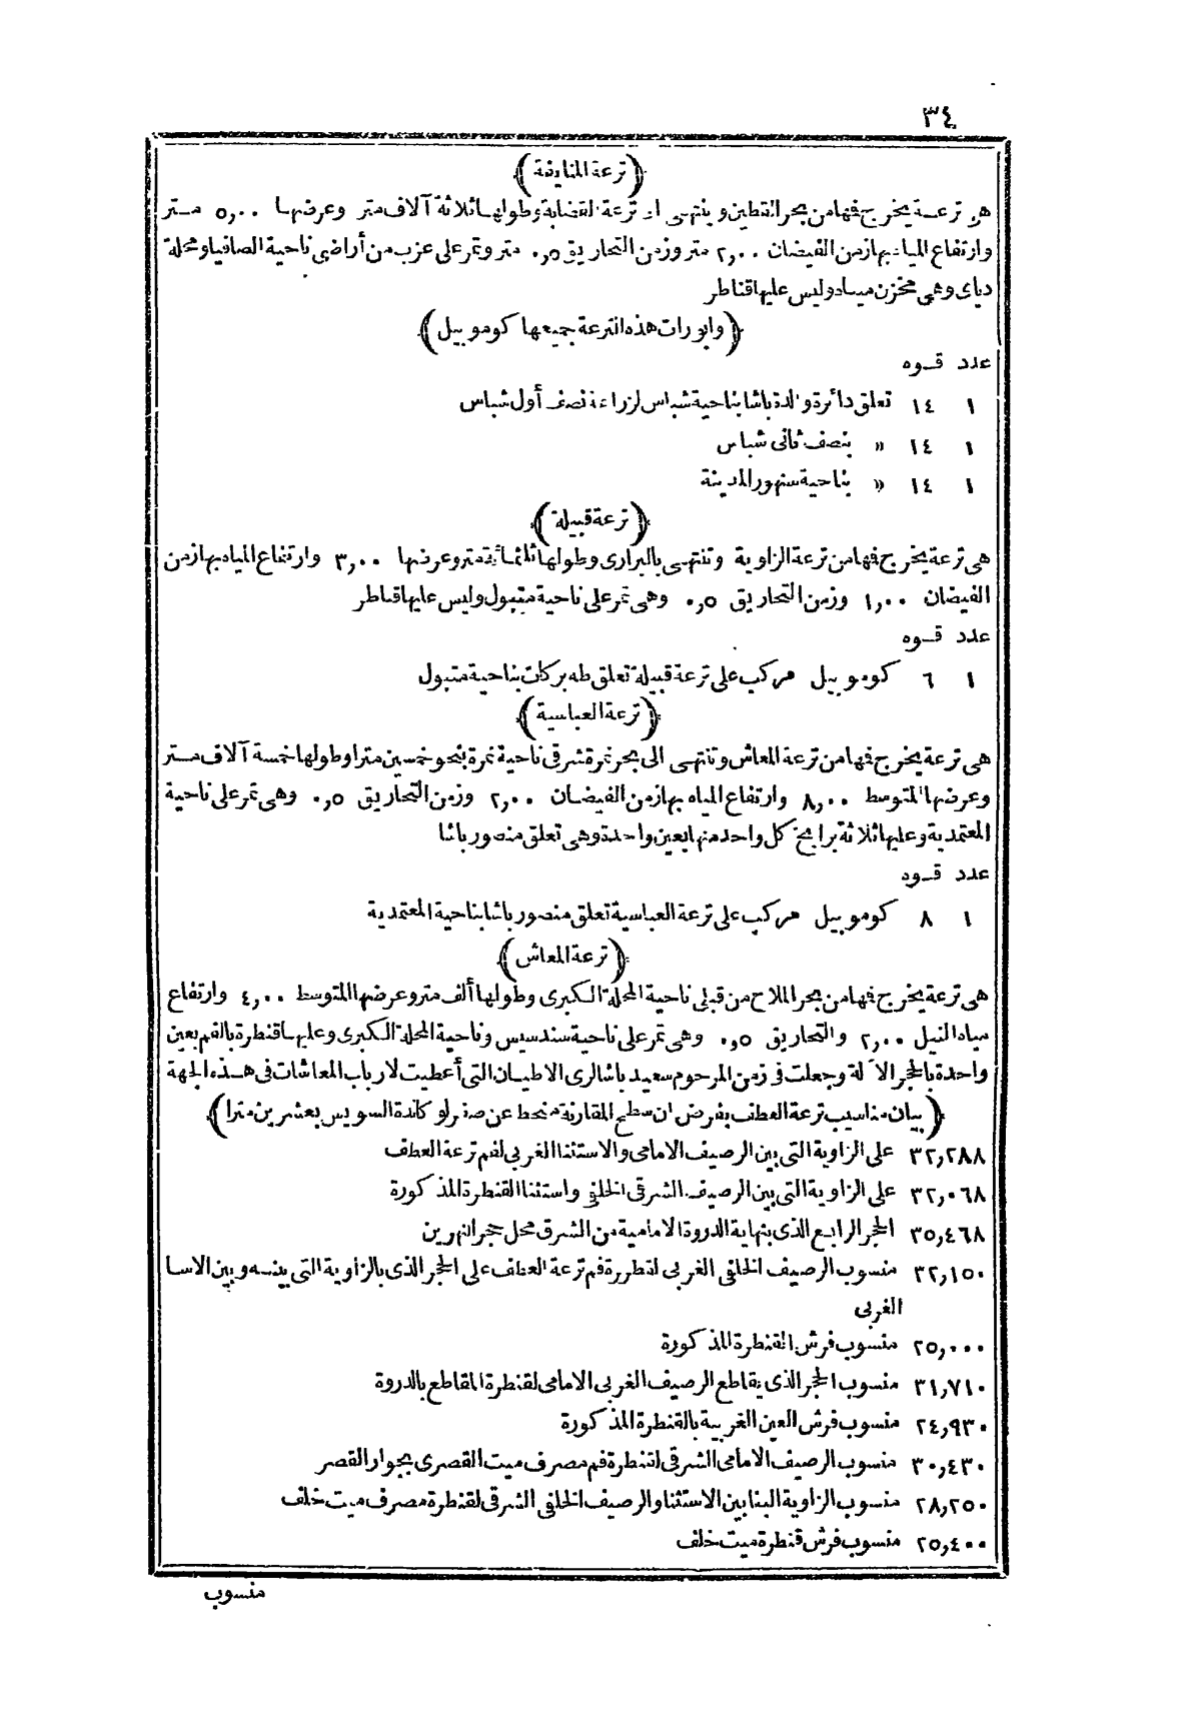 ٣٤
(ترعة المنايفة)
هى ترعة يخرج فها من بحر القطين وينتهى الى ترعة القضابة وطولها ثلاثة آلاف متر وعرضها ٥,٠٠ متر
وارتفاع المياه بها زمن الفيضان ٢,٠٠ متر وزمن التحاريق ٠,٥ متر وتمر على عزب من أراضى ناحية الصافيا ومحلة
دياى وهى مخزن مياه وليس عليها قناطر
(وابورات هذه الترعة جميعها كوموبيل)
عدد قوه
١ ١٤ تعلق دائرة والدة باشا بناحية شباس لزراعة نصف أول شباس
١ ١٤ » بنصف ثانى شباس
١ ١٤ » بناحية سنهور المدينة
(ترعة قبيلة)
هى ترعة يخرج فها من ترعة الزاوية وتنتهى بالبرارى وطولها ثلثمائة متر وعرضها ٣,٠٠ وارتفاع المياه بها زمن
الفيضان ١,٠٠ وزمن التحاريق ٠,٥ وهى تمر على ناحية متبول وليس عليها قناطر
عدد قوه
١ ٦ كوموبيل مركب على ترعة قبيلة تعلق طه بركات بناحية متبول
(ترعة العباسية)
هى ترعة يخرج فها من ترعة المعاش وتنتهى الى بحر نمرة شرقى ناحية نمرة بنحو خمسين مترا وطولها خمسة آلاف متر
وعرضها المتوسط ٨,٠٠ وارتفاع المياه بها زمن الفيضان ٢,٠٠ وزمن التحاريق ٠,٥ وهى تمر على ناحية
المعتمدية وعليها ثلاثة برابخ كل واحد منها بعين واحدة وهى تعلق منصور باشا
عدد قوه
١ ٨ كوموبيل مركب على ترعة العباسية تعلق منصور باشا بناحية المعتمدية
(ترعة المعاش)
هى ترعة يخرج فها من بحر الملاح من قبلى ناحية المحلة الكبرى وطولها ألف متر وعرضها المتوسط ٤,٠٠ وارتفاع
مياه النيل ٢,٠٠ والتحاريق ٠,٥ وهى تمر على ناحية سندسيس وناحية المحلة الكبرى وعليها قنطرة بالفم بعين
واحدة بالحجر الآلة وجعلت فى زمن المرحوم سعيد باشا لرى الاطيان التى أعطيت لارباب المعاشات فى هذه الجهة
(بيان مناسيب ترعة العطف بفرض ان سطح المقارنة منحط عن صفر لوكاندة السويس بعشرين مترا)
٣٢,٢٨٨ على الزاوية التى بين الرصيف الامامى والاستثنا الغربى لفم ترعة العطف
٣٢,٠٦٨ على الزاوية التى بين الرصيف الشرقى الخلفى واستثنا القنطرة المذكورة
٣٥,٤٦٨ الحجر الرابع الذى بنهاية الدروة الامامية من الشرق محل حجر النهرين
٣٢,١٥٠ منسوب الرصيف الخلفى الغربى لقنطرة فم ترعة العطف على الحجر الذى بالزاوية التى بينه وبين الاسا
الغربى
٢٥,٠٠٠ منسوب فرش القنطرة المذكورة
٣١,٧١٠ منسوب الحجر الذى يقاطع الرصيف الغربى الامامى لقنطرة المقاطع بالدروة
٢٤,٩٣٠ منسوب فرش العين الغربية بالقنطرة المذكورة
٣٠,٤٣٠ منسوب الرصيف الامامى الشرقى لقنطرة فم مصرف ميت القصرى بجوار القصر
٢٨,٢٥٠ منسوب الزاوية البنا بين الاستثنا والرصيف الخلفى الشرقى لقنطرة مصرف ميت خلف
٢٥,٤٠٠ منسوب فرش قنطرة ميت خلف
منسوب